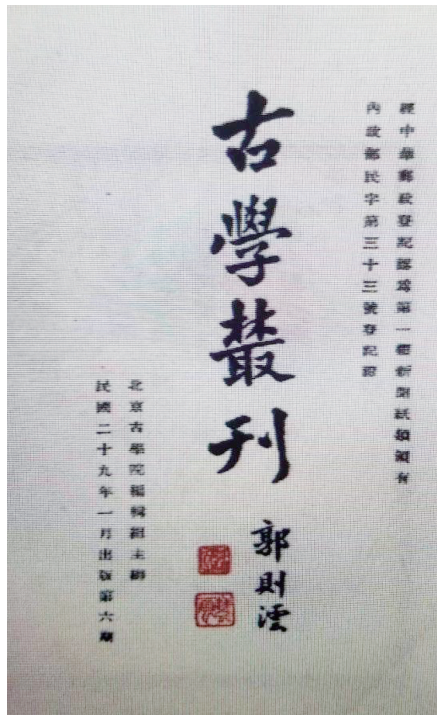 經中華郵政登記認為第一類新聞紙類領有
內政部民字第三十三號登記證
古學叢刊
郭則澐
北京古學院編輯組主辦
民國二十九年一月出版第六期